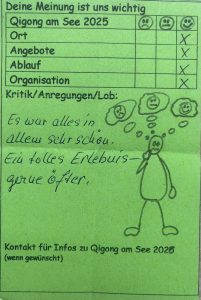 Deine Meinung ist uns wichtig
Qigong am See 2025
Ort X
Angebote X
Ablauf X
Organisation X
Kritik/Anregungen/Lob:
Es war alles in
allem sehr schön.
Ein tolles Erlebnis –
gerne öfter.
Kontakt für Infos zu Qigong am See 2025
(wenn gewünscht)